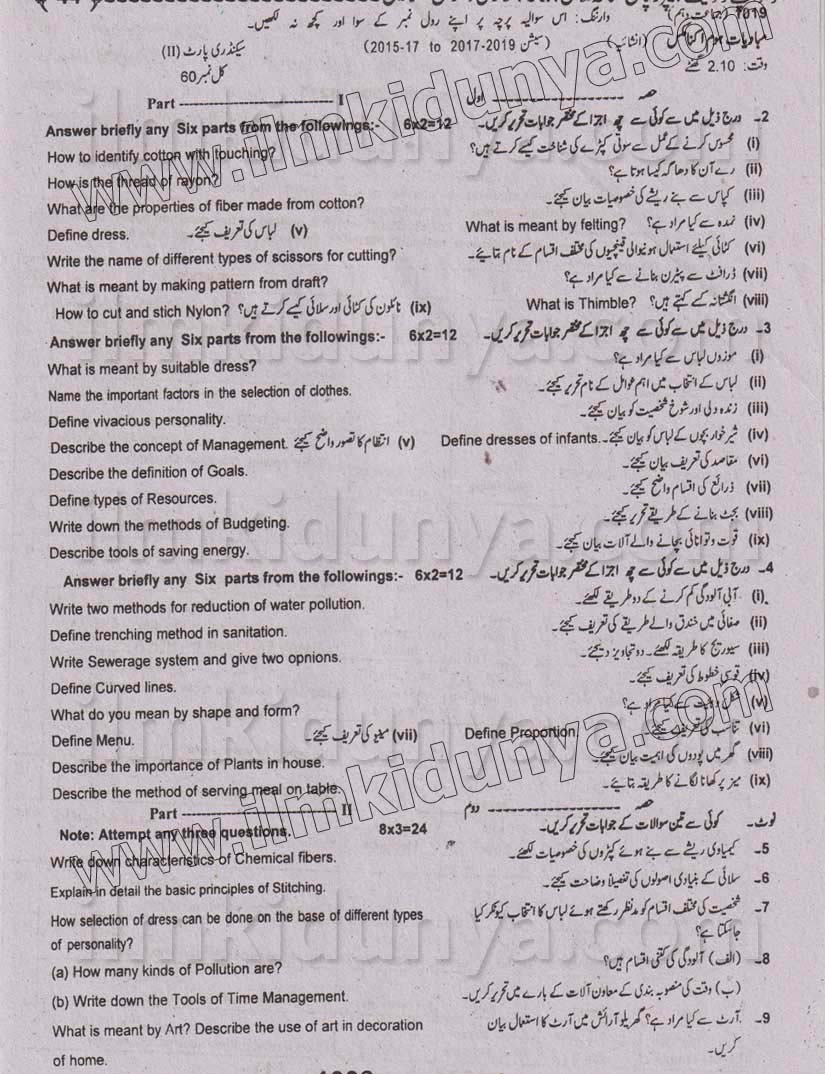 1019 (جماعت دہم) وارننگ: اس سوالیہ پرچہ پر اپنے رول نمبر کے سوا اور کچھ نہ لکھیں۔
مبادیات ہوم اکنامکس (انشائیہ) (سیشن 2015-17 to 2017-2019) سیکنڈری پارٹ (II)
وقت: 2.10 گھنٹے کل نمبر 60
Part ---------- I حصہ ---------- اول
Answer briefly any Six parts from the followings:- 6x2=12 2۔ درج ذیل میں سے کوئی سے چھ اجزا کے مختصر جوابات تحریر کریں۔
How to identify cotton with touching? (i) محسوس کرنے کے عمل سے سوتی کپڑے کی شناخت کیسے کرتے ہیں؟
How is the thread of rayon? (ii) رے آن کا دھاگہ کیسا ہوتا ہے؟
What are the properties of fiber made from cotton? (iii) کپاس سے بنے ریشے کی خصوصیات بیان کیجئے۔
Define dress. (v) لباس کی تعریف کیجئے۔ What is meant by felting? (iv) نمدہ سے کیا مراد ہے؟
Write the name of different types of scissors for cutting? (vi) کٹائی کیلئے استعمال ہونیوالی قینچیوں کی مختلف اقسام کے نام بتائیے۔
What is meant by making pattern from draft? (vii) ڈرافٹ سے پیٹرن بنانے سے کیا مراد ہے؟
How to cut and stich Nylon? (ix) نائلون کی کٹائی اور سلائی کیسے کرتے ہیں؟ What is Thimble? (viii) انگشتانہ کسے کہتے ہیں؟
Answer briefly any Six parts from the followings:- 6x2=12 3۔ درج ذیل میں سے کوئی سے چھ اجزا کے مختصر جوابات تحریر کریں۔
What is meant by suitable dress? (i) موزوں لباس سے کیا مراد ہے؟
Name the important factors in the selection of clothes. (ii) لباس کے انتخاب میں اہم عوامل کے نام تحریر کیجئے۔
Define vivacious personality. (iii) زندہ دلی اور شوخ شخصیت کو بیان کیجئے۔
Describe the concept of Management. (v) انتظام کا تصور واضح کیجئے Define dresses of infants. (iv) شیر خوار بچوں کے لباس کو بیان کیجئے۔
Describe the definition of Goals. (vi) مقاصد کی تعریف بیان کیجئے۔
Define types of Resources. (vii) ذرائع کی اقسام واضح کیجئے۔
Write down the methods of Budgeting. (viii) بجٹ بنانے کے طریقے تحریر کیجئے۔
Describe tools of saving energy. (ix) قوت و توانائی بچانے والے آلات بیان کیجئے۔
Answer briefly any Six parts from the followings:- 6x2=12 4۔ درج ذیل میں سے کوئی سے چھ اجزا کے مختصر جوابات تحریر کریں۔
Write two methods for reduction of water pollution. (i) آبی آلودگی کم کرنے کے دو طریقے لکھئے۔
Define trenching method in sanitation. (ii) صفائی میں خندق والے طریقے کی تعریف کیجئے۔
Write Sewerage system and give two opnions. (iii) سیوریج کا طریقہ لکھئے۔ دو تجاویز دیجئے۔
Define Curved lines. (iv) قوسی خطوط کی تعریف کیجئے۔
What do you mean by shape and form? (v) شکل و ہیئت سے کیا مراد ہے؟
Define Menu. (vii) مینیو کی تعریف کیجئے۔ Define Proportion. (vi) تناسب کی تعریف کیجئے۔
Describe the importance of Plants in house. (viii) گھر میں پودوں کی اہمیت بیان کیجئے۔
Describe the method of serving meal on table. (ix) میز پر کھانا لگانے کا طریقہ بتائیے۔
Part ---------- II حصہ ---------- دوم
Note: Attempt any three questions. 8x3=24 نوٹ۔ کوئی سے تین سوالات کے جوابات تحریر کریں۔
Write down characteristics of Chemical fibers. 5۔ کیمیاوی ریشے سے بنے ہوئے کپڑوں کی خصوصیات لکھئے۔
Explain in detail the basic principles of Stitching. 6۔ سلائی کے بنیادی اصولوں کی تفصیلاً وضاحت کیجئے۔
How selection of dress can be done on the base of different types 7۔ شخصیت کی مختلف اقسام کو مدنظر رکھتے ہوئے لباس کا انتخاب کیونکر کیا
of personality? جا سکتا ہے؟
(a) How many kinds of Pollution are? 8۔ (الف) آلودگی کی کتنی اقسام ہیں؟
(b) Write down the Tools of Time Management. (ب) وقت کی منصوبہ بندی کے معاون آلات کے بارے میں تحریر کریں۔
What is meant by Art? Describe the use of art in decoration 9۔ آرٹ سے کیا مراد ہے؟ گھریلو آرائش میں آرٹ کا استعمال بیان
of home. کریں۔
www.ilmkidunya.com
ilmkidunya.com